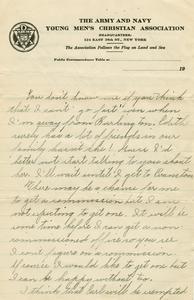 THE ARMY AND NAVY
YOUNG MEN'S CHRISTIAN ASSOCIATION
HEADQUARTERS,
124 EAST 28th ST., NEW YORK
The Association Follows the Flag on Land and Sea
Public Correspondence Table at
19
You don't know me if you think
that I can't go "part" way when
I'm away from Burlington. Edith
surely has a lot of friends in our
family has she? I guess I'd
better not start talking to you about
her. I'll wait until I get to
There may be a chance for me
to get a commission but I am
not expecting to get one. It will be
some time before I can get a non
commissioned office so you see
I don't figure on a commission.
Of course I would like to get one but
I can be happy without
I think that Earl will be exempted